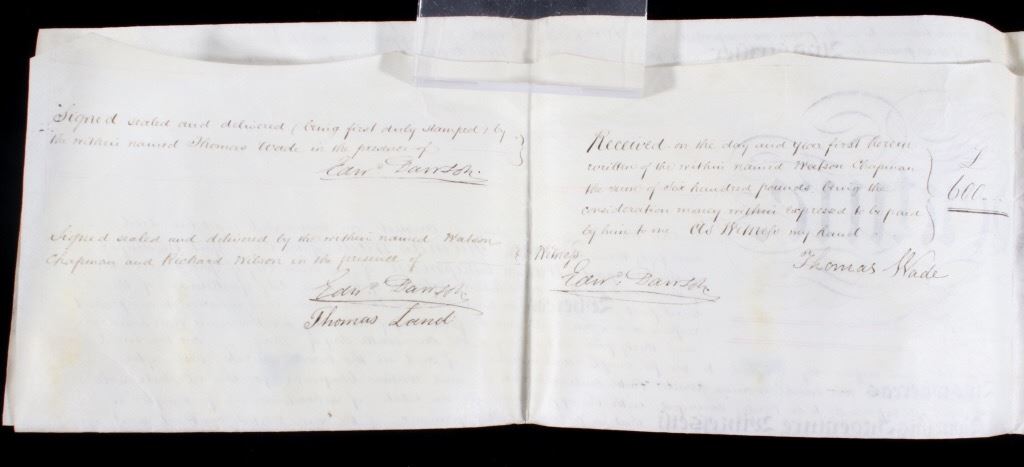 Signed sealed and delivered (being first duly stamped) by
the within named Thomas Wade in the presence of
Edwd. Dawson.
Signed sealed and delivered by the within named Watson
Chapman and Richard Wilson in the presence of
Edwd. Dawson
Thomas Land
Received on the day and year first herein
written of the within named Watson Chapman
the sum of six hundred pounds being the
consideration money within expressed to be paid
by him to me As Witness my hand
£
600..
Thomas Wade
Witness
Edwd. Dawson